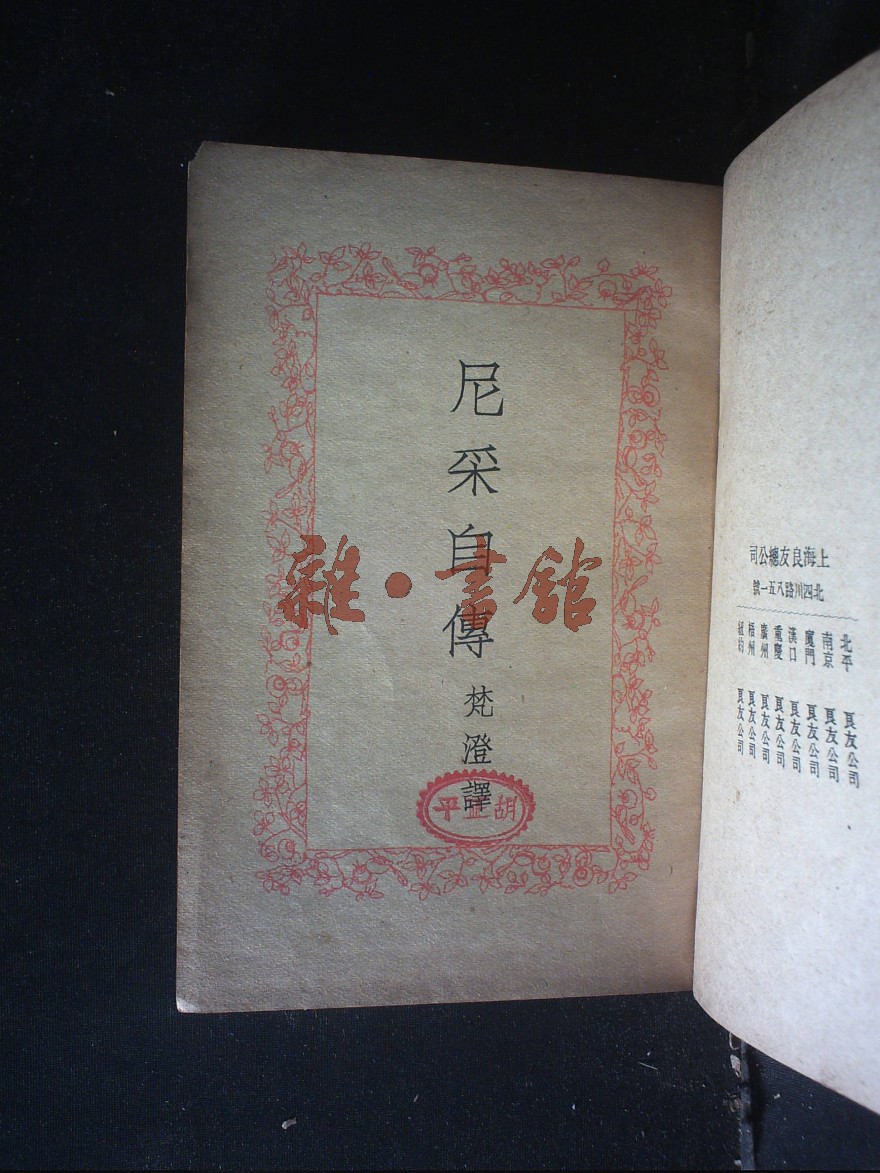 尼采自傳
梵澄譯
雜·書館
胡 平
上海良友總公司
北四川路八五一號
北平 良友公司
南京 良友公司
廈門 良友公司
漢口 良友公司
重慶 良友公司
廣州 良友公司
梧州 良友公司
紐約 良友公司